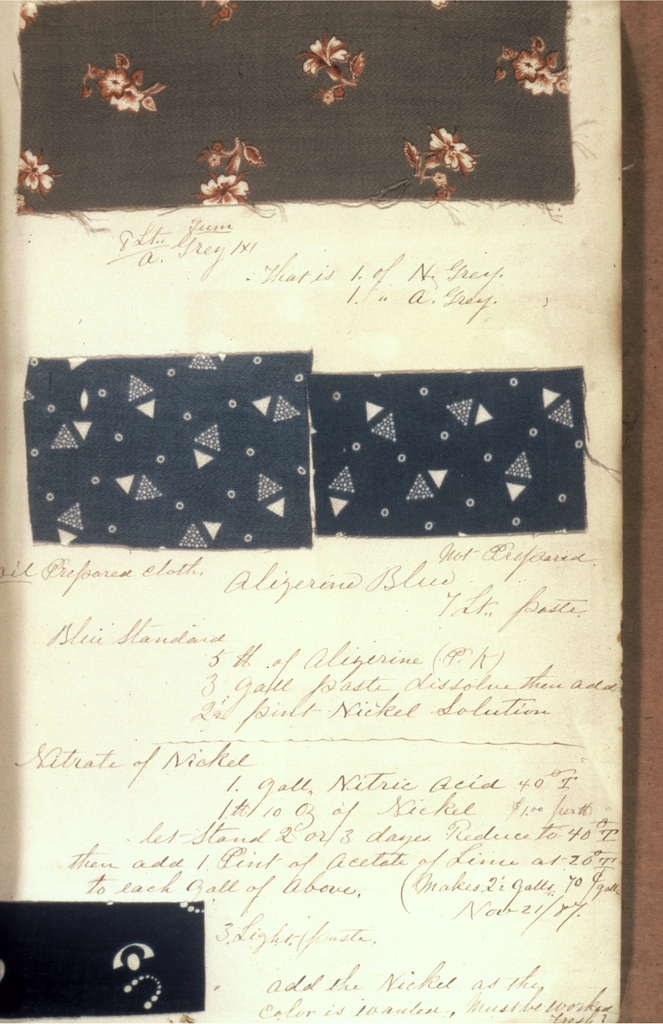 8 Lt. Gum
A. Grey 1x1
That is 1. of N. Grey.
1. " A. Grey.
oil Prepared cloth.
Not Prepared
Alizerine Blue
7 Lt. paste.
Blue Standard
5 lb of Alizerine (P. K)
3 gall paste dissolve then add
2½ pint Nickel Solution
Nitrate of Nickel
1. gall, Nitric acid 40° T
1 lb 10 oz of Nickel $1.00 per lb
let Stand 2 or 3 dayes. Reduce to 40° T
then add 1 Pint of Acetate of Lime at 20° T
to each Gall of Above. (Makes 2½ galls. 70 ¢ gall
Nov 21/87.
3. Light paste.
add the Nickel as the
color is wanted, Must be worked
fresh